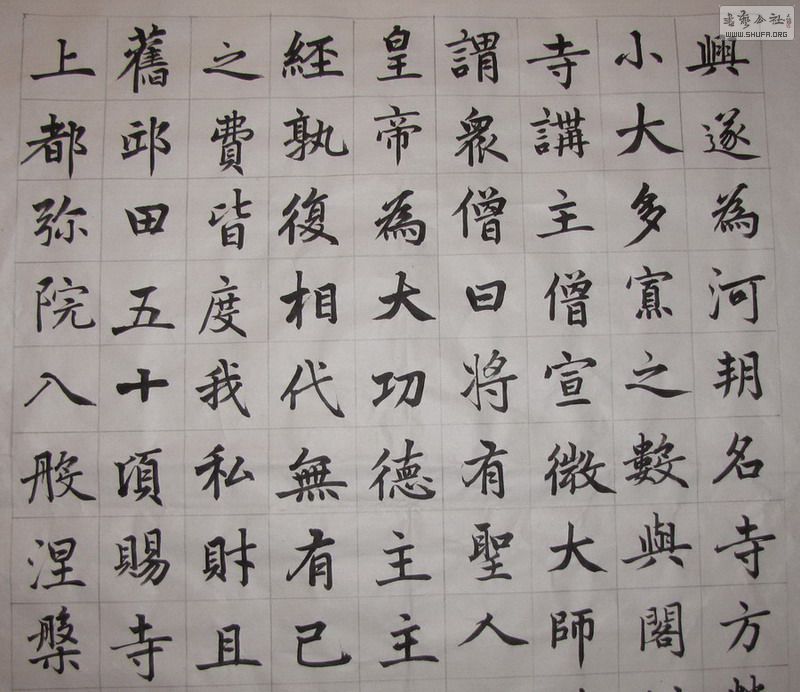 興遂為河朔名寺方
小大多寡之數與閣
寺講主僧宣微大師
謂衆僧曰將有聖人
皇帝為大功德主主
經孰復相代無有已
之費皆度我私財且
舊邱田五十頃賜寺
上都弥院入般涅槃
书艺公社
WWW.SHUFA.ORG